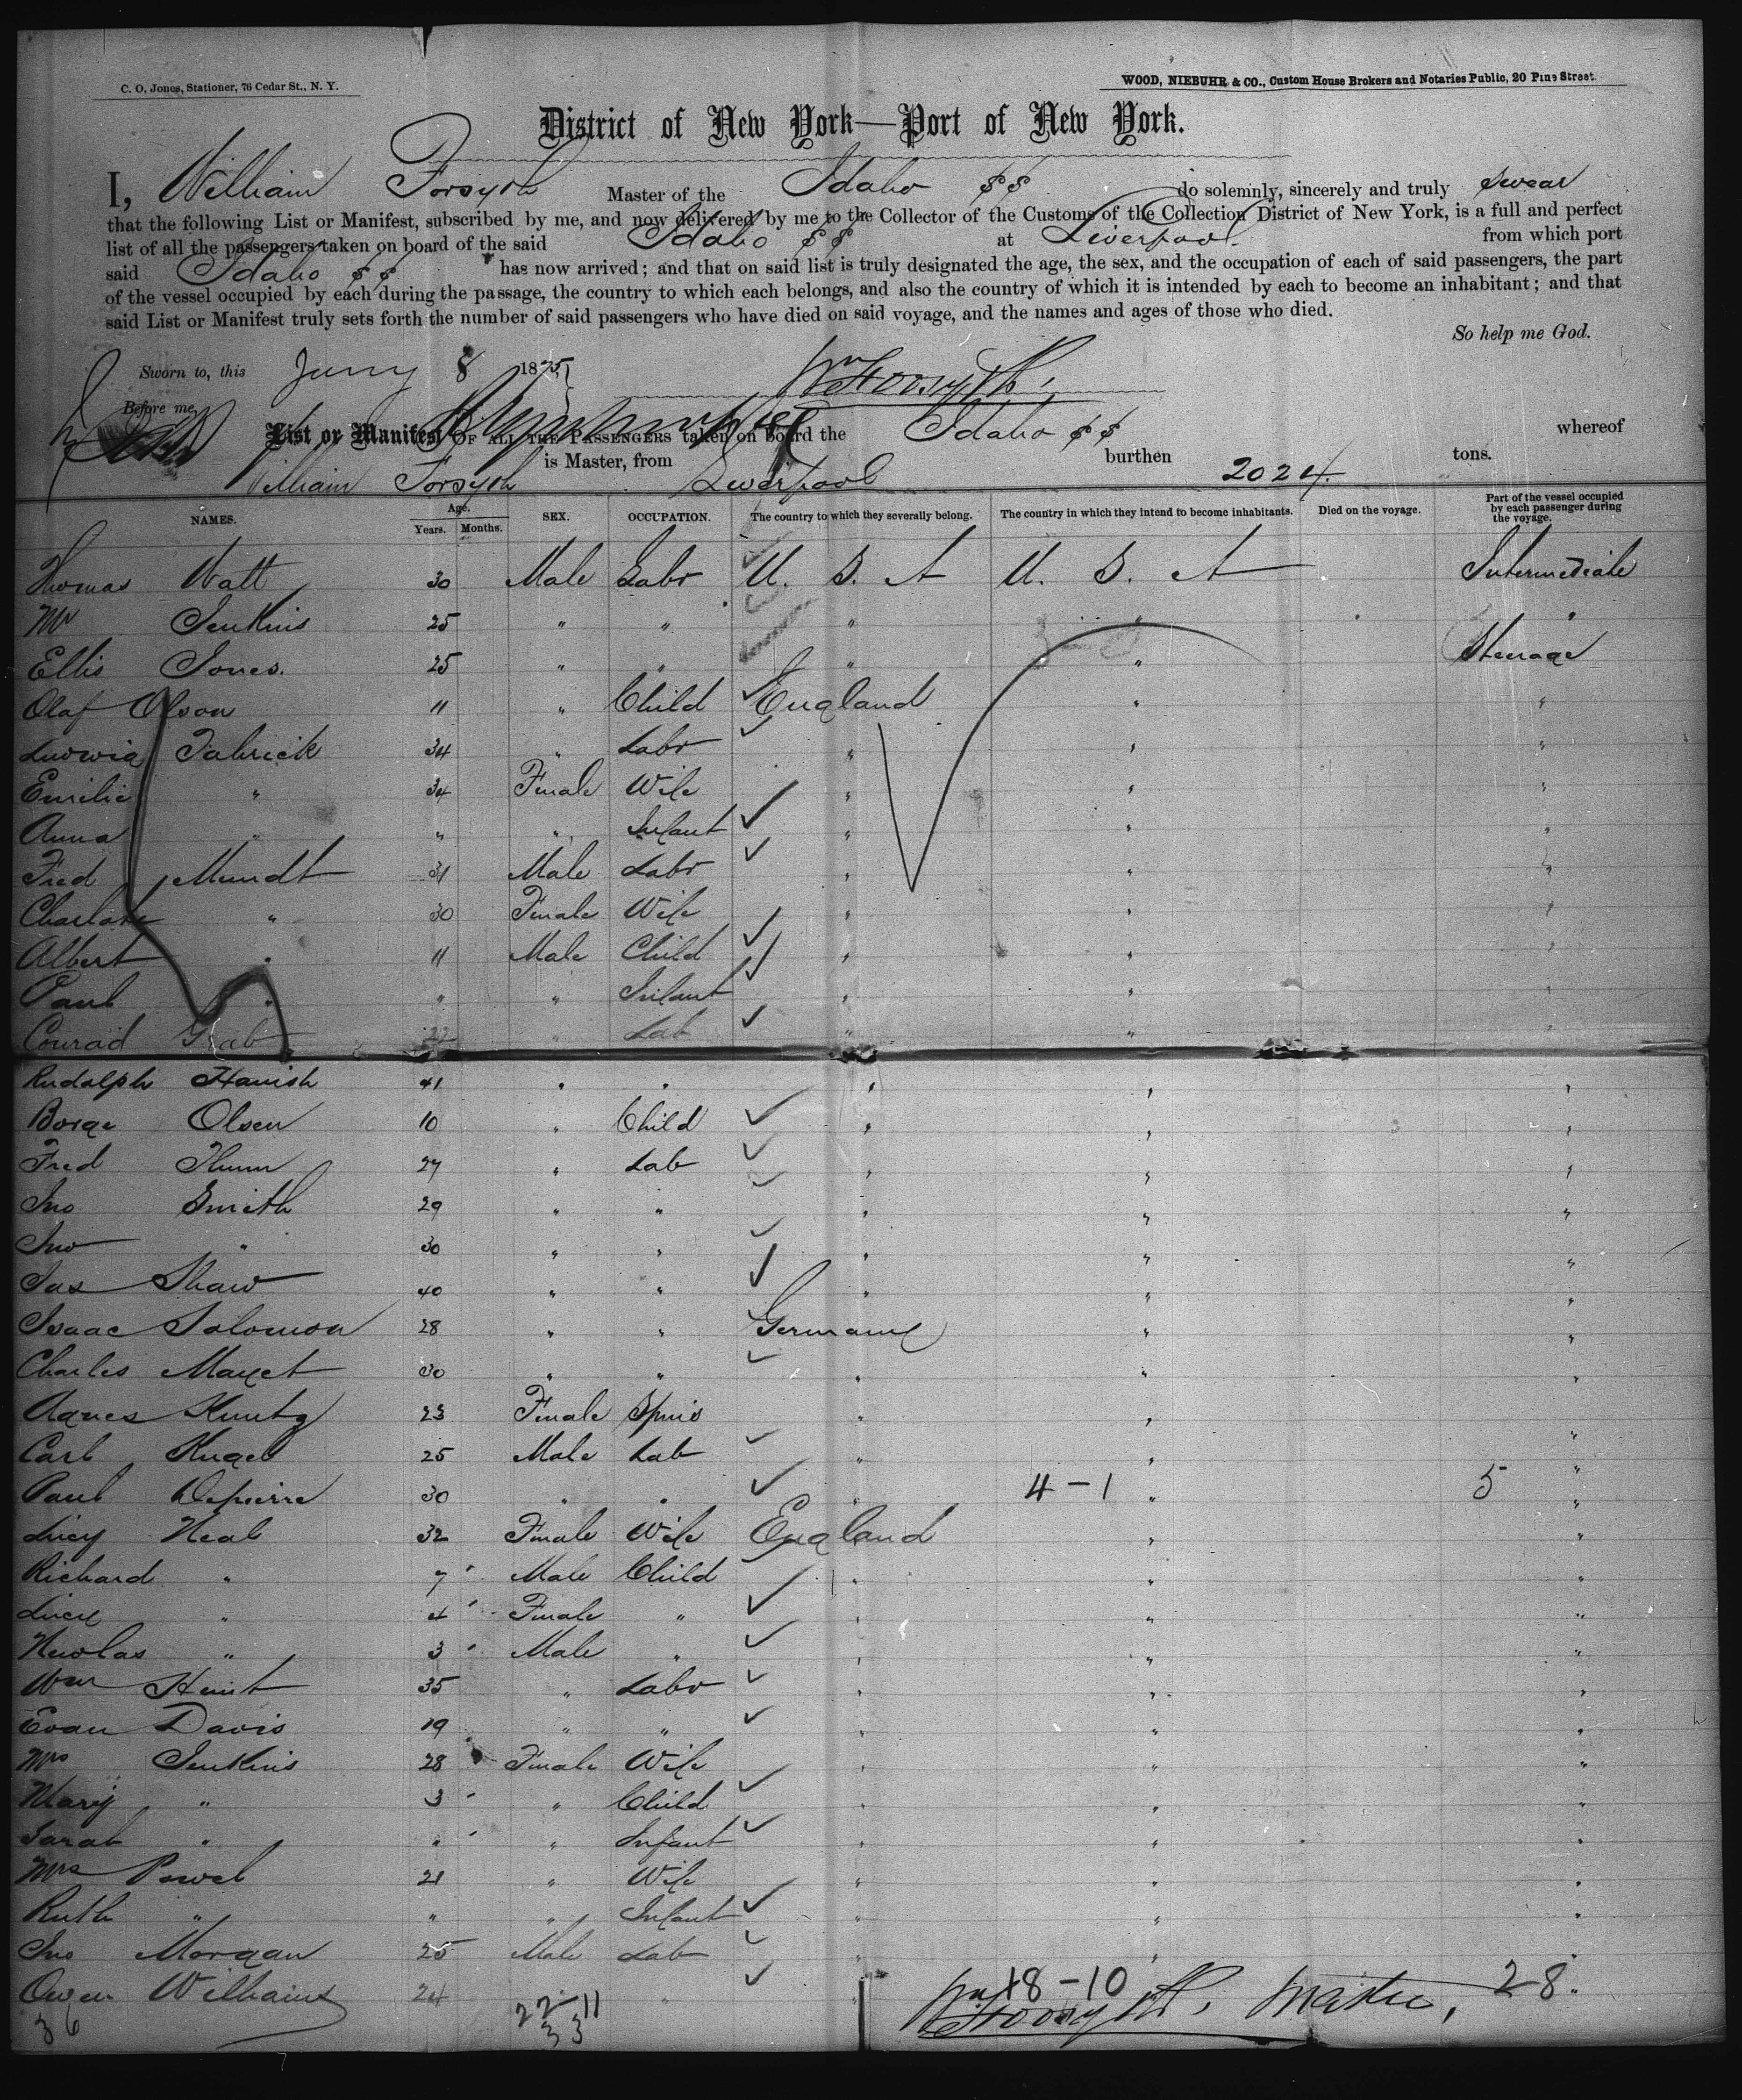 C. O. Jones, Stationer, 76 Cedar St., N. Y.
WOOD, NIEBUHR & CO., Custom House Brokers and Notaries Public, 20 Pine Street.
District of New York—Port of New York.
I, William Forsyth Master of the Idaho SS do solemnly, sincerely and truly swear
that the following List or Manifest, subscribed by me, and now delivered by me to the Collector of the Customs of the Collection District of New York, is a full and perfect
list of all the passengers taken on board of the said Idaho SS at Liverpool from which port
said Idaho SS has now arrived; and that on said list is truly designated the age, the sex, and the occupation of each of said passengers, the part
of the vessel occupied by each during the passage, the country to which each belongs, and also the country of which it is intended by each to become an inhabitant; and that
said List or Manifest truly sets forth the number of said passengers who have died on said voyage, and the names and ages of those who died.
So help me God.
Sworn to, this Jany 8 1875
Wm Forsyth
Before me,
List or Manifest OF ALL THE PASSENGERS taken on board the Idaho SS whereof
William Forsyth is Master, from Liverpool burthen 2024 tons.
NAMES. Age. Years. Months. SEX. OCCUPATION. The country to which they severally belong. The country in which they intend to become inhabitants. Died on the voyage. Part of the vessel occupied by each passenger during the voyage.
Thomas Watt 30 Male Labr U. S. A U. S. A Intermediate
Mr Jenkins 25 " " " " "
Ellis Jones. 25 " " " " Steerage
Olaf Olson 11 " Child England " "
Ludwig Fabrick 34 " Labr " " "
Emilie " 34 Female Wife " " "
Anna " " " Infant " " "
Fred Mundt 31 Male Labr " " "
Charlote " 30 Female Wife " " "
Albert " 11 Male Child " " "
Paul " " " Infant " " "
Conrad Grab 22 " Lab " " "
Rudolph Hanish 41 " " " " "
Borge Olsen 10 " Child " " "
Fred Thum 27 " Lab " " "
Jno Smith 29 " " " " "
Jno " 30 " " " " "
Jas Shaw 40 " " " " "
Isaac Solomon 28 " " Germany " "
Charles Mayet 30 " " " " "
Agnes Kuntz 23 Female Spins " " "
Carl Kugel 25 Male Lab " " "
Paul Depierre 30 " " " 4-1 " 5 "
Lucy Neal 32 Female Wife England " "
Richard " 7 Male Child " " "
Lucy " 4 Female " " " "
Nicolas " 3 Male " " " "
Wm Hunt 35 " Labr " " "
Evan Davis 19 " " " " "
Mrs Jenkins 28 Female Wife " " "
Mary " 3 " Child " " "
Sarah " " " Infant " " "
Mrs Powel 21 " Wife " " "
Ruth " " " Infant " " "
Jno Morgan 25 Male Lab " " "
Owen Williams 24 " " " 18-10 28.
36 22 11
33
Wm Forsyth, Master,